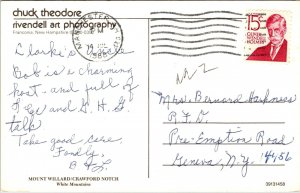 chuck theodore
rivendell art photography
Franconia, New Hampshire
MANCHESTER
1986
15¢
OLIVER
WENDELL
HOLMES
Clarke's
Bob is a charming
host - and full of
G.E. and G.H.G.
talk
Take good care,
Fondly
Mrs Bernard Harkness
R.F.D.
Pre-Emption Road
Geneva, N.Y. 14456
MOUNT WILLARD/CRAWFORD NOTCH
White Mountains